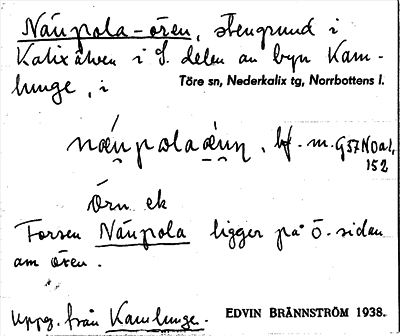 Näupola-ören, stengrund i
Kalixälven i S. delen av byn Kam-
lunge, i Töre sn, Nederkalix tg, Norrbottens l.
bf. m. G57 No a1,
152
Örn ek
Forsen Näupola ligger på Ö-sidan
om ören.
Uppg. från Kamlunge. EDVIN BRÄNNSTRÖM 1938.